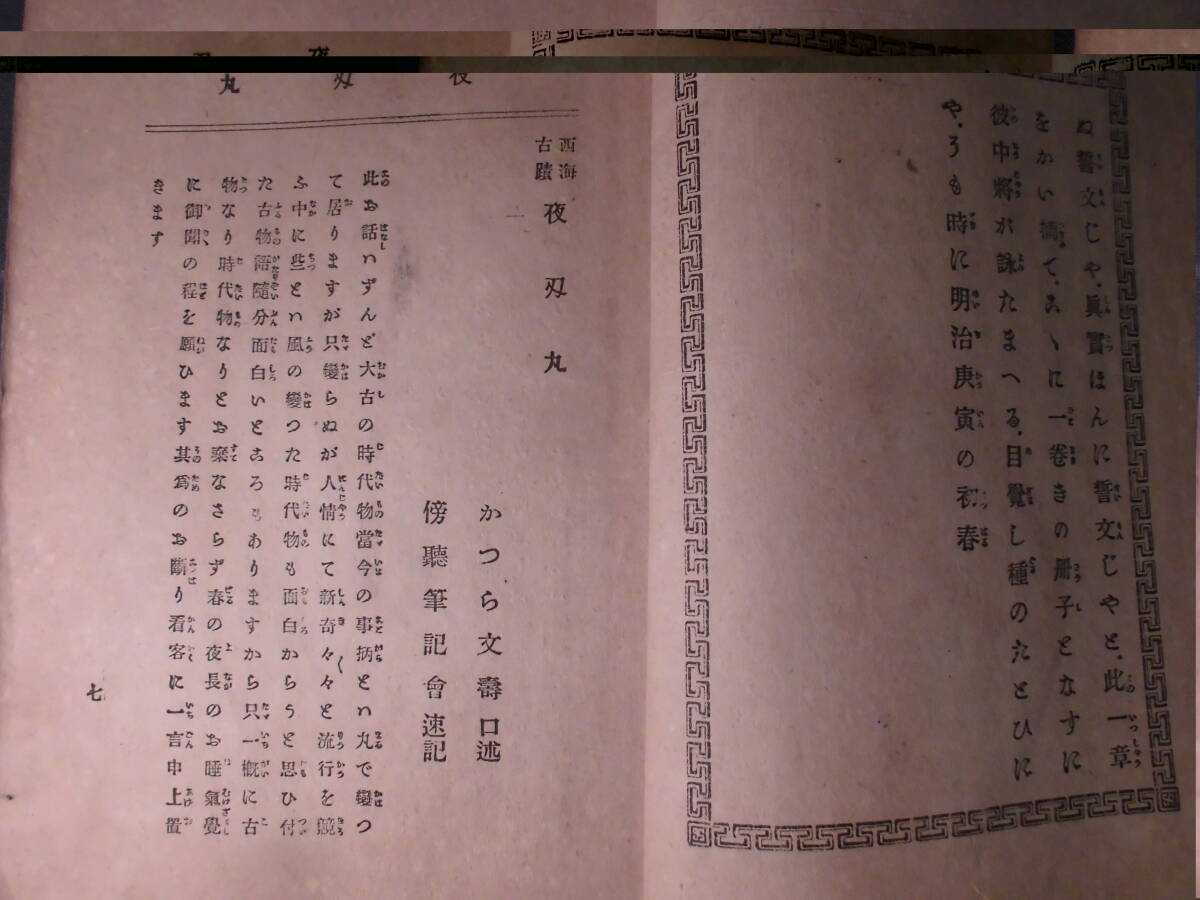 ぬ誓文じや、眞實ほんに誓文じやと、此一章
をかい摘て、こゝに一卷きの冊子となすに
彼中將が詠たまへる、目覺し種のたとひに
や、ろも時に明治庚寅の初春
西海
古蹟
夜刄丸
一
かつら文壽口述
傍聽筆記會速記
此お話ハずんど大古の時代物當今の事抦とハ丸で變つ
て居りますが只變らぬが人情にて新奇々々と流行を競
ふ中に些とハ風の變つた時代物も面白からうと思ひ付
た古物語隨分面白いところもありますから只一概に古
物なり時代物なりとお棄なさらず春の夜長のお睡氣覺
に御聞の程を願ひます其爲のお斷り看客に一言申上置
きます
七